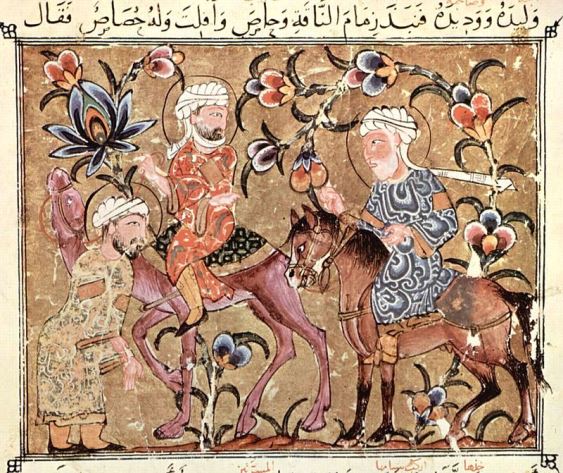 وَلِيدَهُ وَوَدِيدَهُ فَنَبَذَ زِمَامَ النَّاقَةِ وَحَاصَ وَافلَتَ وَلَهُ حُصَاصٌ فَقَالَ